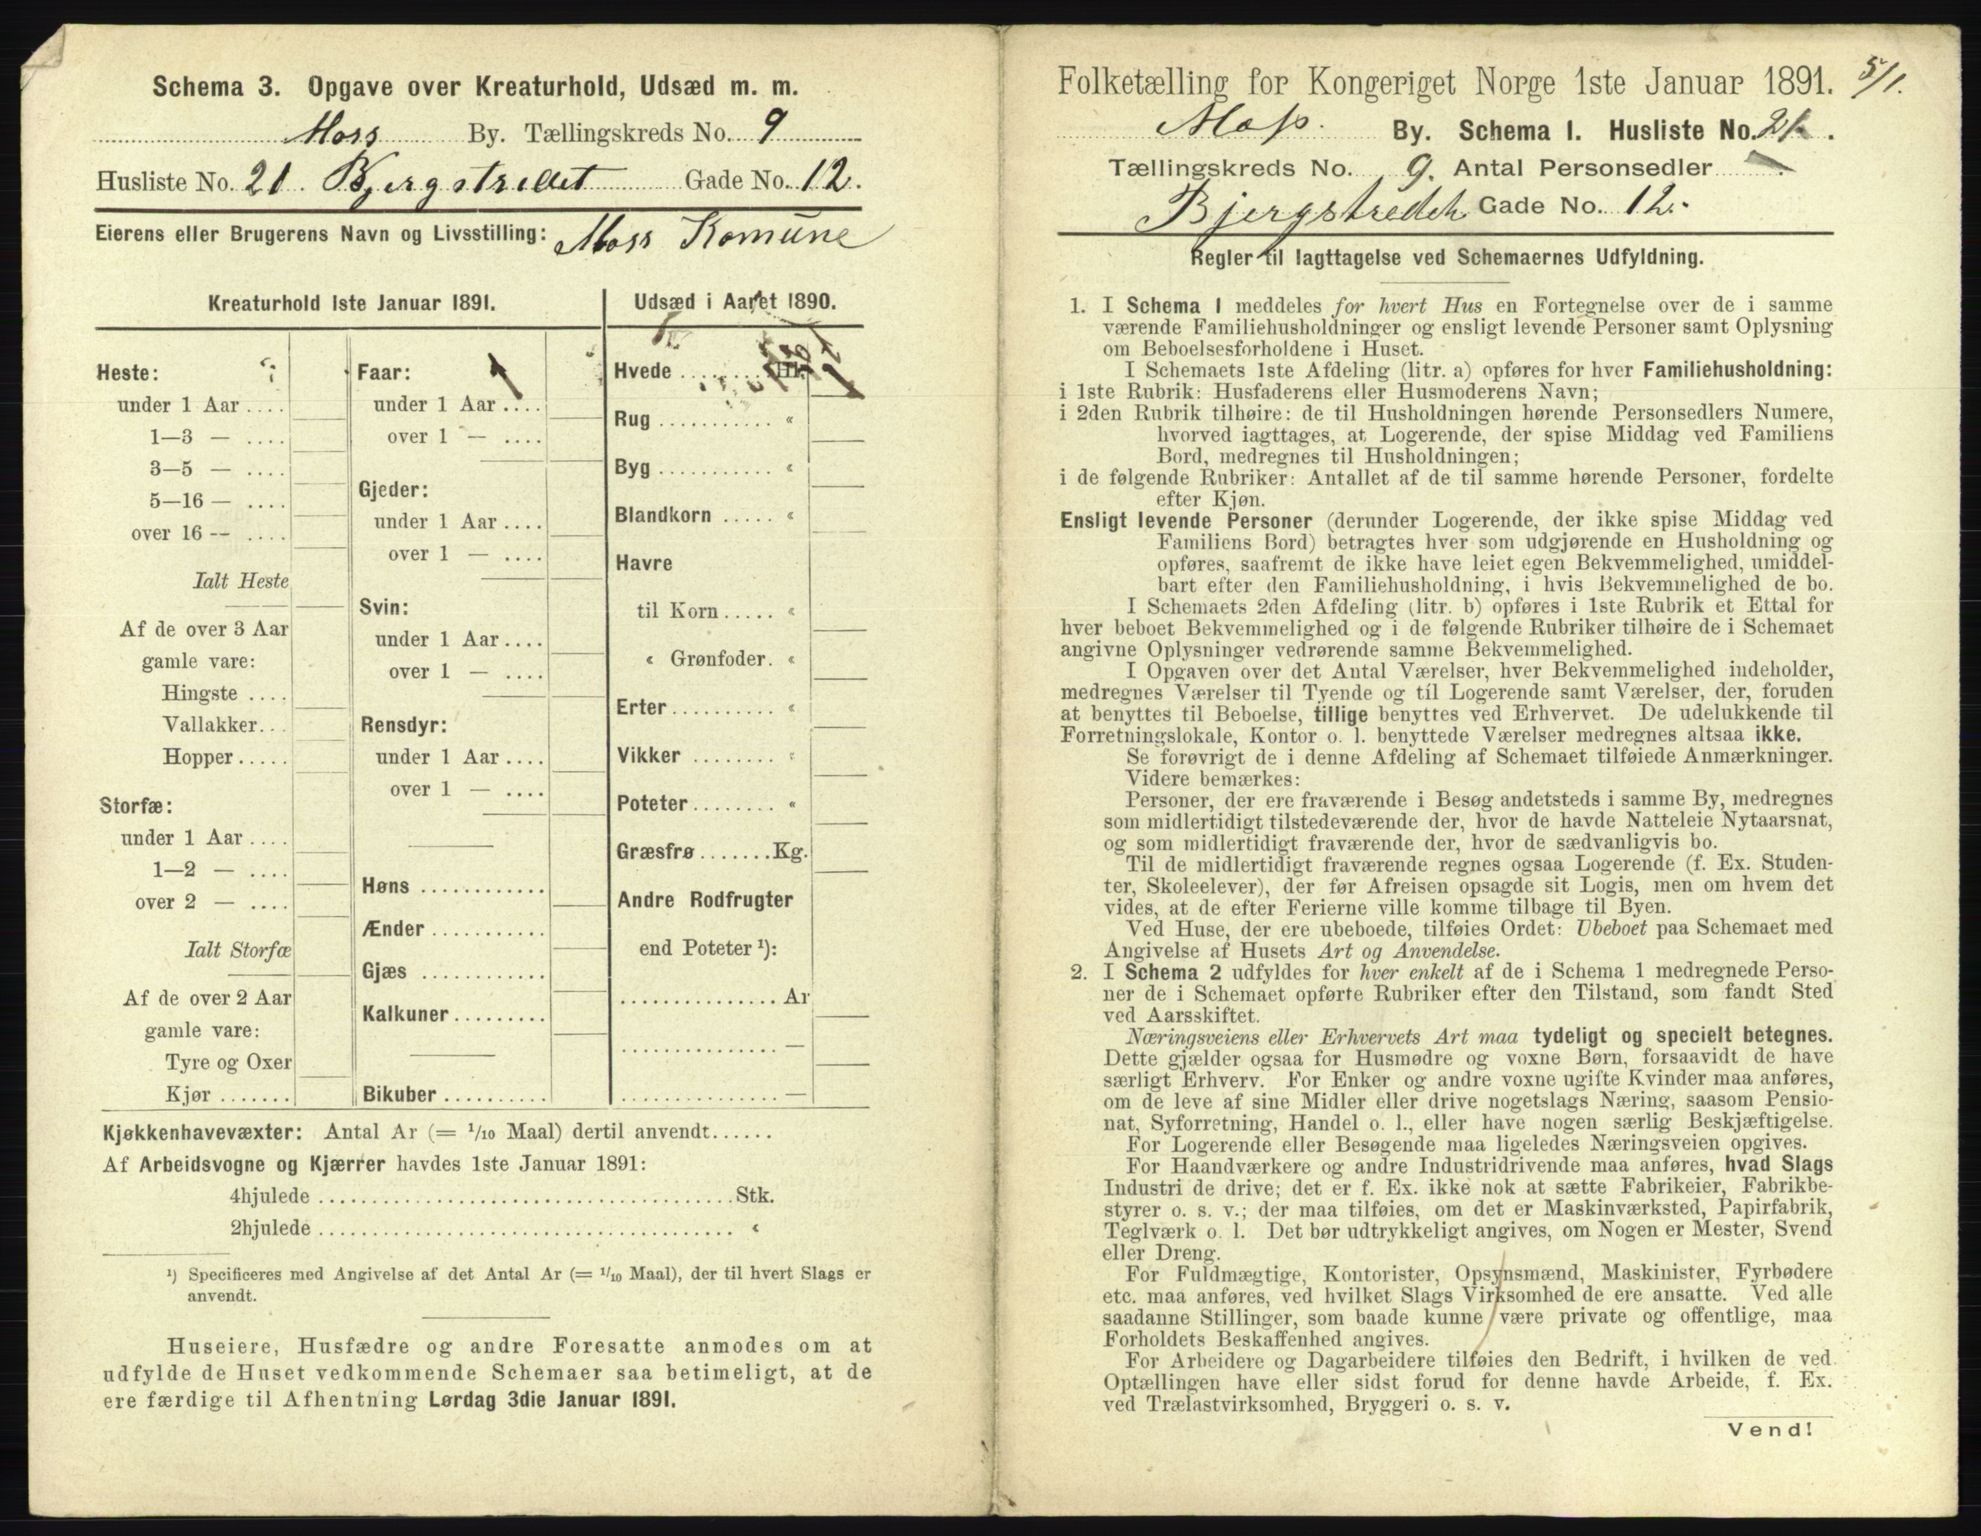 Schema 3. Opgave over Kreaturhold, Udsæd m. m.
Moss By. Tællingskreds No. 9
Husliste No. 21. Gade No. 12.
Eierens eller Brugerens Navn og Livsstilling: Moss Komune
Kreaturhold 1ste Januar 1891.
Heste:
under 1 Aar ....
1—3 — ....
3—5 — ....
5—16 — ....
over 16 -- ....
Ialt Heste
Af de over 3 Aar
gamle vare:
Hingste ....
Vallakker...
Hopper.....
Storfæ:
under 1 Aar ....
1—2 — ....
over 2 — ....
Ialt Storfæ
Af de over 2 Aar
gamle vare:
Tyre og Oxer
Kjør .......
Faar:
under 1 Aar....
over 1 — ....
Gjeder:
under 1 Aar....
over 1 — ....
Svin:
under 1 Aar....
over 1 — ....
Rensdyr:
under 1 Aar....
over 1 — ....
Høns ............
Ænder...........
Gjæs ............
Kalkuner.........
Bikuber ..........
Udsæd i Aaret 1890.
Hvede ......... Hl.
Rug ........... «
Byg ........... «
Blandkorn ..... «
Havre
til Korn ..... «
« Grønfoder. «
Erter.......... «
Vikker ........ «
Poteter........ «
Græsfrø.......Kg.
Andre Rodfrugter
end Poteter ¹):
............... Ar
............... —
............... —
Kjøkkenhavevæxter: Antal Ar (= 1/10 Maal) dertil anvendt......
Af Arbeidsvogne og Kjærrer havdes 1ste Januar 1891:
4hjulede ....................................Stk.
2hjulede .................................... «
¹) Specificeres med Angivelse af det Antal Ar (= 1/10 Maal), der til hvert Slags er
anvendt.
Huseiere, Husfædre og andre Foresatte anmodes om at
udfylde de Huset vedkommende Schemaer saa betimeligt, at de
ere færdige til Afhentning Lørdag 3die Januar 1891.
Folketælling for Kongeriget Norge 1ste Januar 1891. 5/1.
Moss. By. Schema I. Husliste No. 21.
Tællingskreds No. 9. Antal Personsedler
Gade No. 12.
Regler til Iagttagelse ved Schemaernes Udfyldning.
1. I Schema I meddeles for hvert Hus en Fortegnelse over de i samme
værende Familiehusholdninger og ensligt levende Personer samt Oplysning
om Beboelsesforholdene i Huset.
I Schemaets 1ste Afdeling (litr. a) opføres for hver Familiehusholdning:
i 1ste Rubrik: Husfaderens eller Husmoderens Navn;
i 2den Rubrik tilhøire: de til Husholdningen hørende Personsedlers Numere,
hvorved iagttages, at Logerende, der spise Middag ved Familiens
Bord, medregnes til Husholdningen;
i de følgende Rubriker: Antallet af de til samme hørende Personer, fordelte
efter Kjøn.
Ensligt levende Personer (derunder Logerende, der ikke spise Middag ved
Familiens Bord) betragtes hver som udgjørende en Husholdning og
opføres, saafremt de ikke have leiet egen Bekvemmelighed, umiddel-
bart efter den Familiehusholdning, i hvis Bekvemmelighed de bo.
I Schemaets 2den Afdeling (litr. b) opføres i 1ste Rubrik et Ettal for
hver beboet Bekvemmelighed og i de følgende Rubriker tilhøire de i Schemaet
angivne Oplysninger vedrørende samme Bekvemmelighed.
I Opgaven over det Antal Værelser, hver Bekvemmelighed indeholder,
medregnes Værelser til Tyende og til Logerende samt Værelser, der, foruden
at benyttes til Beboelse, tillige benyttes ved Erhvervet. De udelukkende til
Forretningslokale, Kontor o. l. benyttede Værelser medregnes altsaa ikke.
Se forøvrigt de i denne Afdeling af Schemaet tilføiede Anmærkninger.
Videre bemærkes:
Personer, der ere fraværende i Besøg andetsteds i samme By, medregnes
som midlertidigt tilstedeværende der, hvor de havde Natteleie Nytaarsnat,
og som midlertidigt fraværende der, hvor de sædvanligvis bo.
Til de midlertidigt fraværende regnes ogsaa Logerende (f. Ex. Studen-
ter, Skoleelever), der før Afreisen opsagde sit Logis, men om hvem det
vides, at de efter Ferierne ville komme tilbage til Byen.
Ved Huse, der ere ubeboede, tilføies Ordet: Ubeboet paa Schemaet med
Angivelse af Husets Art og Anvendelse.
2. I Schema 2 udfyldes for hver enkelt af de i Schema 1 medregnede Perso-
ner de i Schemaet opførte Rubriker efter den Tilstand, som fandt Sted
ved Aarsskiftet.
Næringsveiens eller Erhvervets Art maa tydeligt og specielt betegnes.
Dette gjælder ogsaa for Husmødre og voxne Børn, forsaavidt de have
særligt Erhverv. For Enker og andre voxne ugifte Kvinder maa anføres,
om de leve af sine Midler eller drive nogetslags Næring, saasom Pensio-
nat, Syforretning, Handel o. l., eller have nogen særlig Beskjæftigelse.
For Logerende eller Besøgende maa ligeledes Næringsveien opgives.
For Haandværkere og andre Industridrivende maa anføres, hvad Slags
Industri de drive; det er f. Ex. ikke nok at sætte Fabrikeier, Fabrikbe-
styrer o. s. v.; der maa tilføies, om det er Maskinværksted, Papirfabrik,
Teglværk o. l. Det bør udtrykkeligt angives, om Nogen er Mester, Svend
eller Dreng.
For Fuldmægtige, Kontorister, Opsynsmænd, Maskinister, Fyrbødere
etc. maa anføres, ved hvilket Slags Virksomhed de ere ansatte. Ved alle
saadanne Stillinger, som baade kunne være private og offentlige, maa
Forholdets Beskaffenhed angives.
For Arbeidere og Dagarbeidere tilføies den Bedrift, i hvilken de ved
Optællingen have eller sidst forud for denne havde Arbeide, f. Ex.
ved Trælastvirksomhed, Bryggeri o. s. v.
Vend!